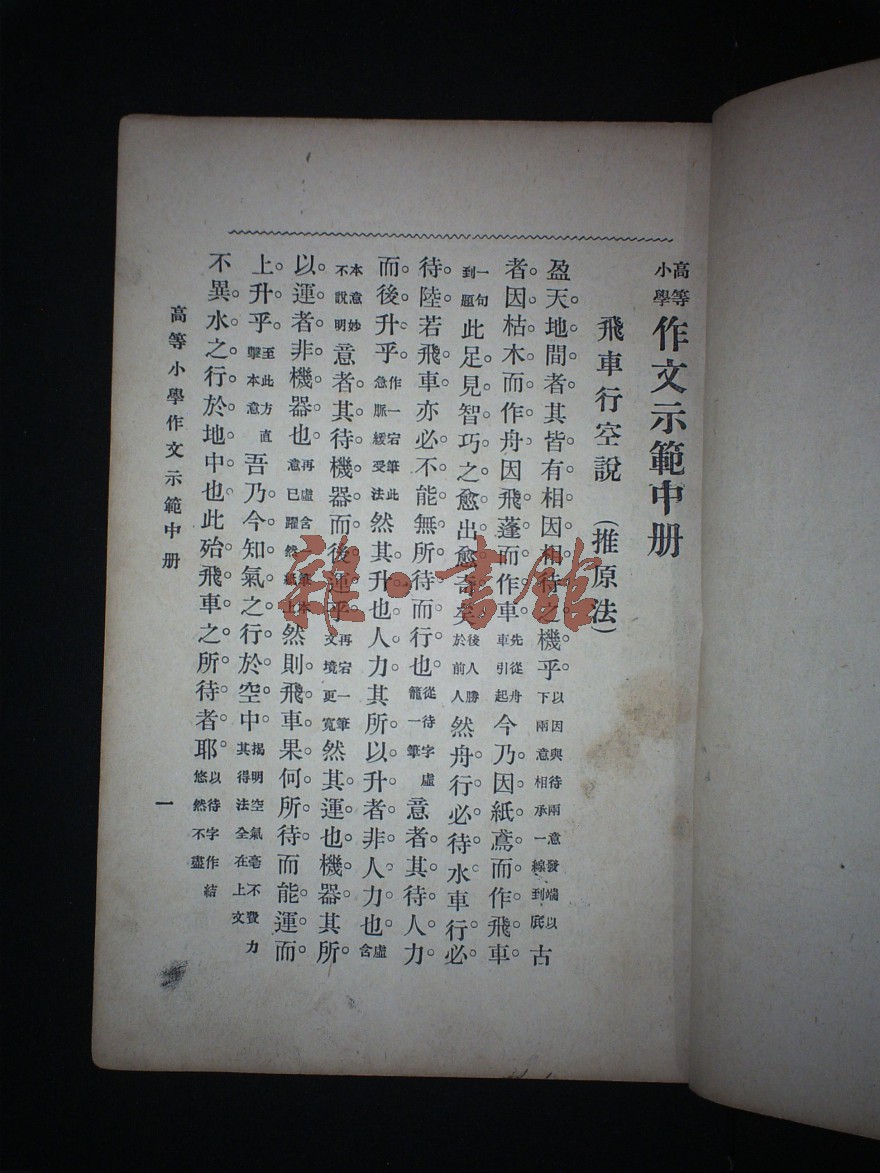 高等小學作文示範中册
飛車行空說（推原法）
盈天地間者。其皆有相因相待之機乎。以因與待兩意發端以下兩意相承一線到底古
者因枯木而作舟。因飛蓬而作車。先從舟車引起今乃因紙鳶而作飛車。
一句到題此足見智巧之愈出愈奇矣。後人勝於前人然舟行必待水。車行必
待陸。若飛車亦必不能無所待而行也。從待字虛籠一筆意者其待人力
而後升乎。作一宕筆此急脈緩受法然其升也。人力其所以升者。非人力也。虛含
本意妙不說明意者其待機器而後運乎。再宕一筆文境更寬然其運也。機器其所
以運者。非機器也。再虛含一筆本意已躍然紙上然則飛車果何所待而能運而
上。升乎。至此方直擊本意吾乃今知氣之行於空中。揭明空氣毫不費力其得法全在上文
不異水之行於地中也。此殆飛車之所待者耶。以待字作結悠然不盡
高等小學作文示範中册
一
雜·書館